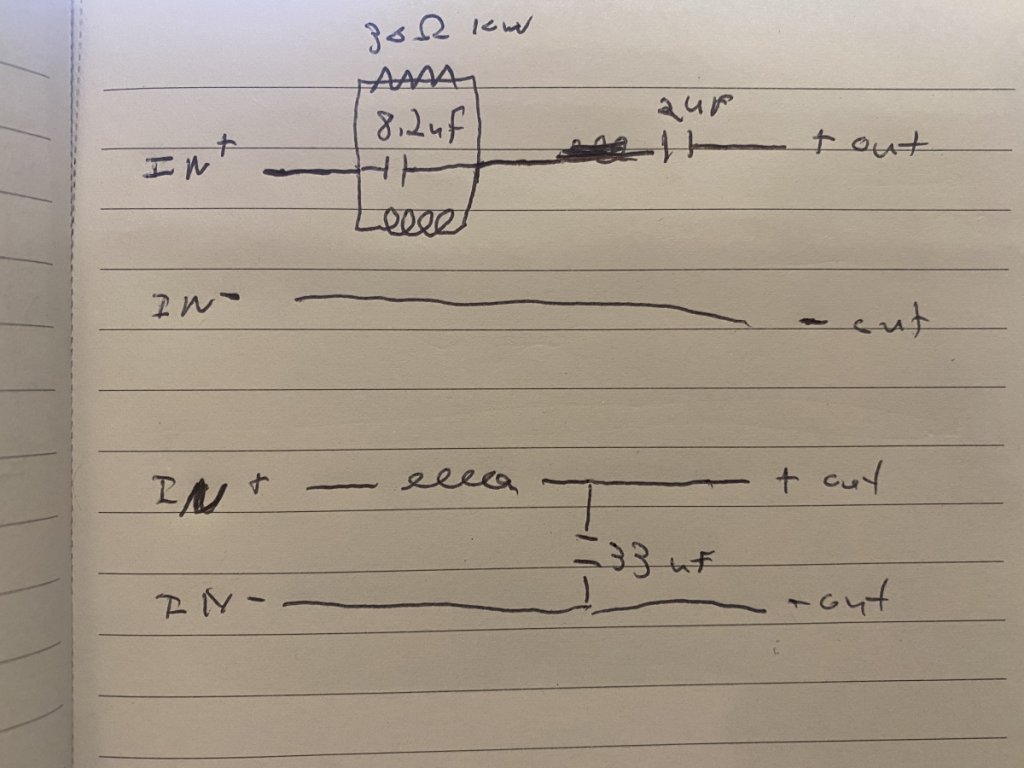 30 Ω 10W
8.2uf
2uF
IN +
+ out
IN -
- out
IN + + out
33 uF
IN - - out